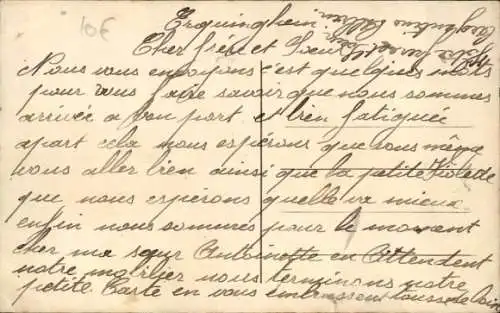 10€
Erquinghem
Cher frère et Soeur
Nous vous envoyons c'est quelques mots
pour vous faire savoir que nous sommes
arrivée a bon port et bien fatiguée
apart cela nous espérons que vous même
vous aller bien ainsi que la petite
que nous espérons quelle va mieux
enfin nous sommes pour le moment
cher ma sœur Antoinette en Attendent
notre mobilier nous terminons notre
petite Carte en vous embrassent tousse de loin